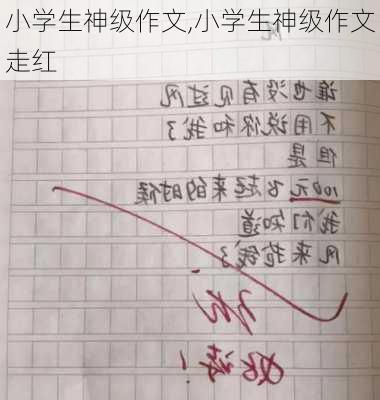 小学生神级作文,小学生神级作文
走红
风
谁也没有见过风
不用说你和我了
但是
100元飞起来的时候
我们知道
风来抢钱了
好诗!